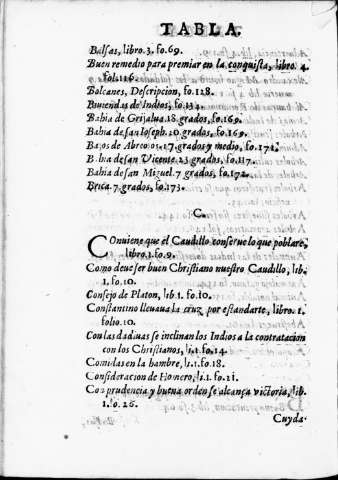 TABLA.
Balsas, libro.3, fo.69.
Buen remedio para premiar en la conquista, libro. 4.
fol.116.
Bolcanes, Descripcion, fo.128.
Biuiendas de Indios, fo.134.
Bahia de Grijalua.18.grados, fo.169.
Bahia de san Ioseph.20.grados, fo.169.
Baxos de Abreojos.17.grados y medio, fo.172.
Bahia de san Vicente.23.grados, fo.117.
Bahia de San Miguel.7.grados, fo.172.
Brica.7.grados, fo.173.
C.
COnuiene que el Caudillo conserue lo que poblare,
libro.1.fo.9.
Como deue ser buen Christiano nuestro Caudillo, lib.
1.fo.10.
Consejo de Platon, lib.1. fo.10.
Constantino lleuaua la cruz por estandarte, libro. 1.
folio.10.
Con las dadiuas se inclinan los Indios a la contratacion
con los Christianos, li.1.fo.14.
Comidas en la hambre, li.1.fo.18.
Consideracion de Homero, li.1.fo.21.
Con prudencia y buena orden se alcança victoria, lib.
1.fo.26.
Cuyda-